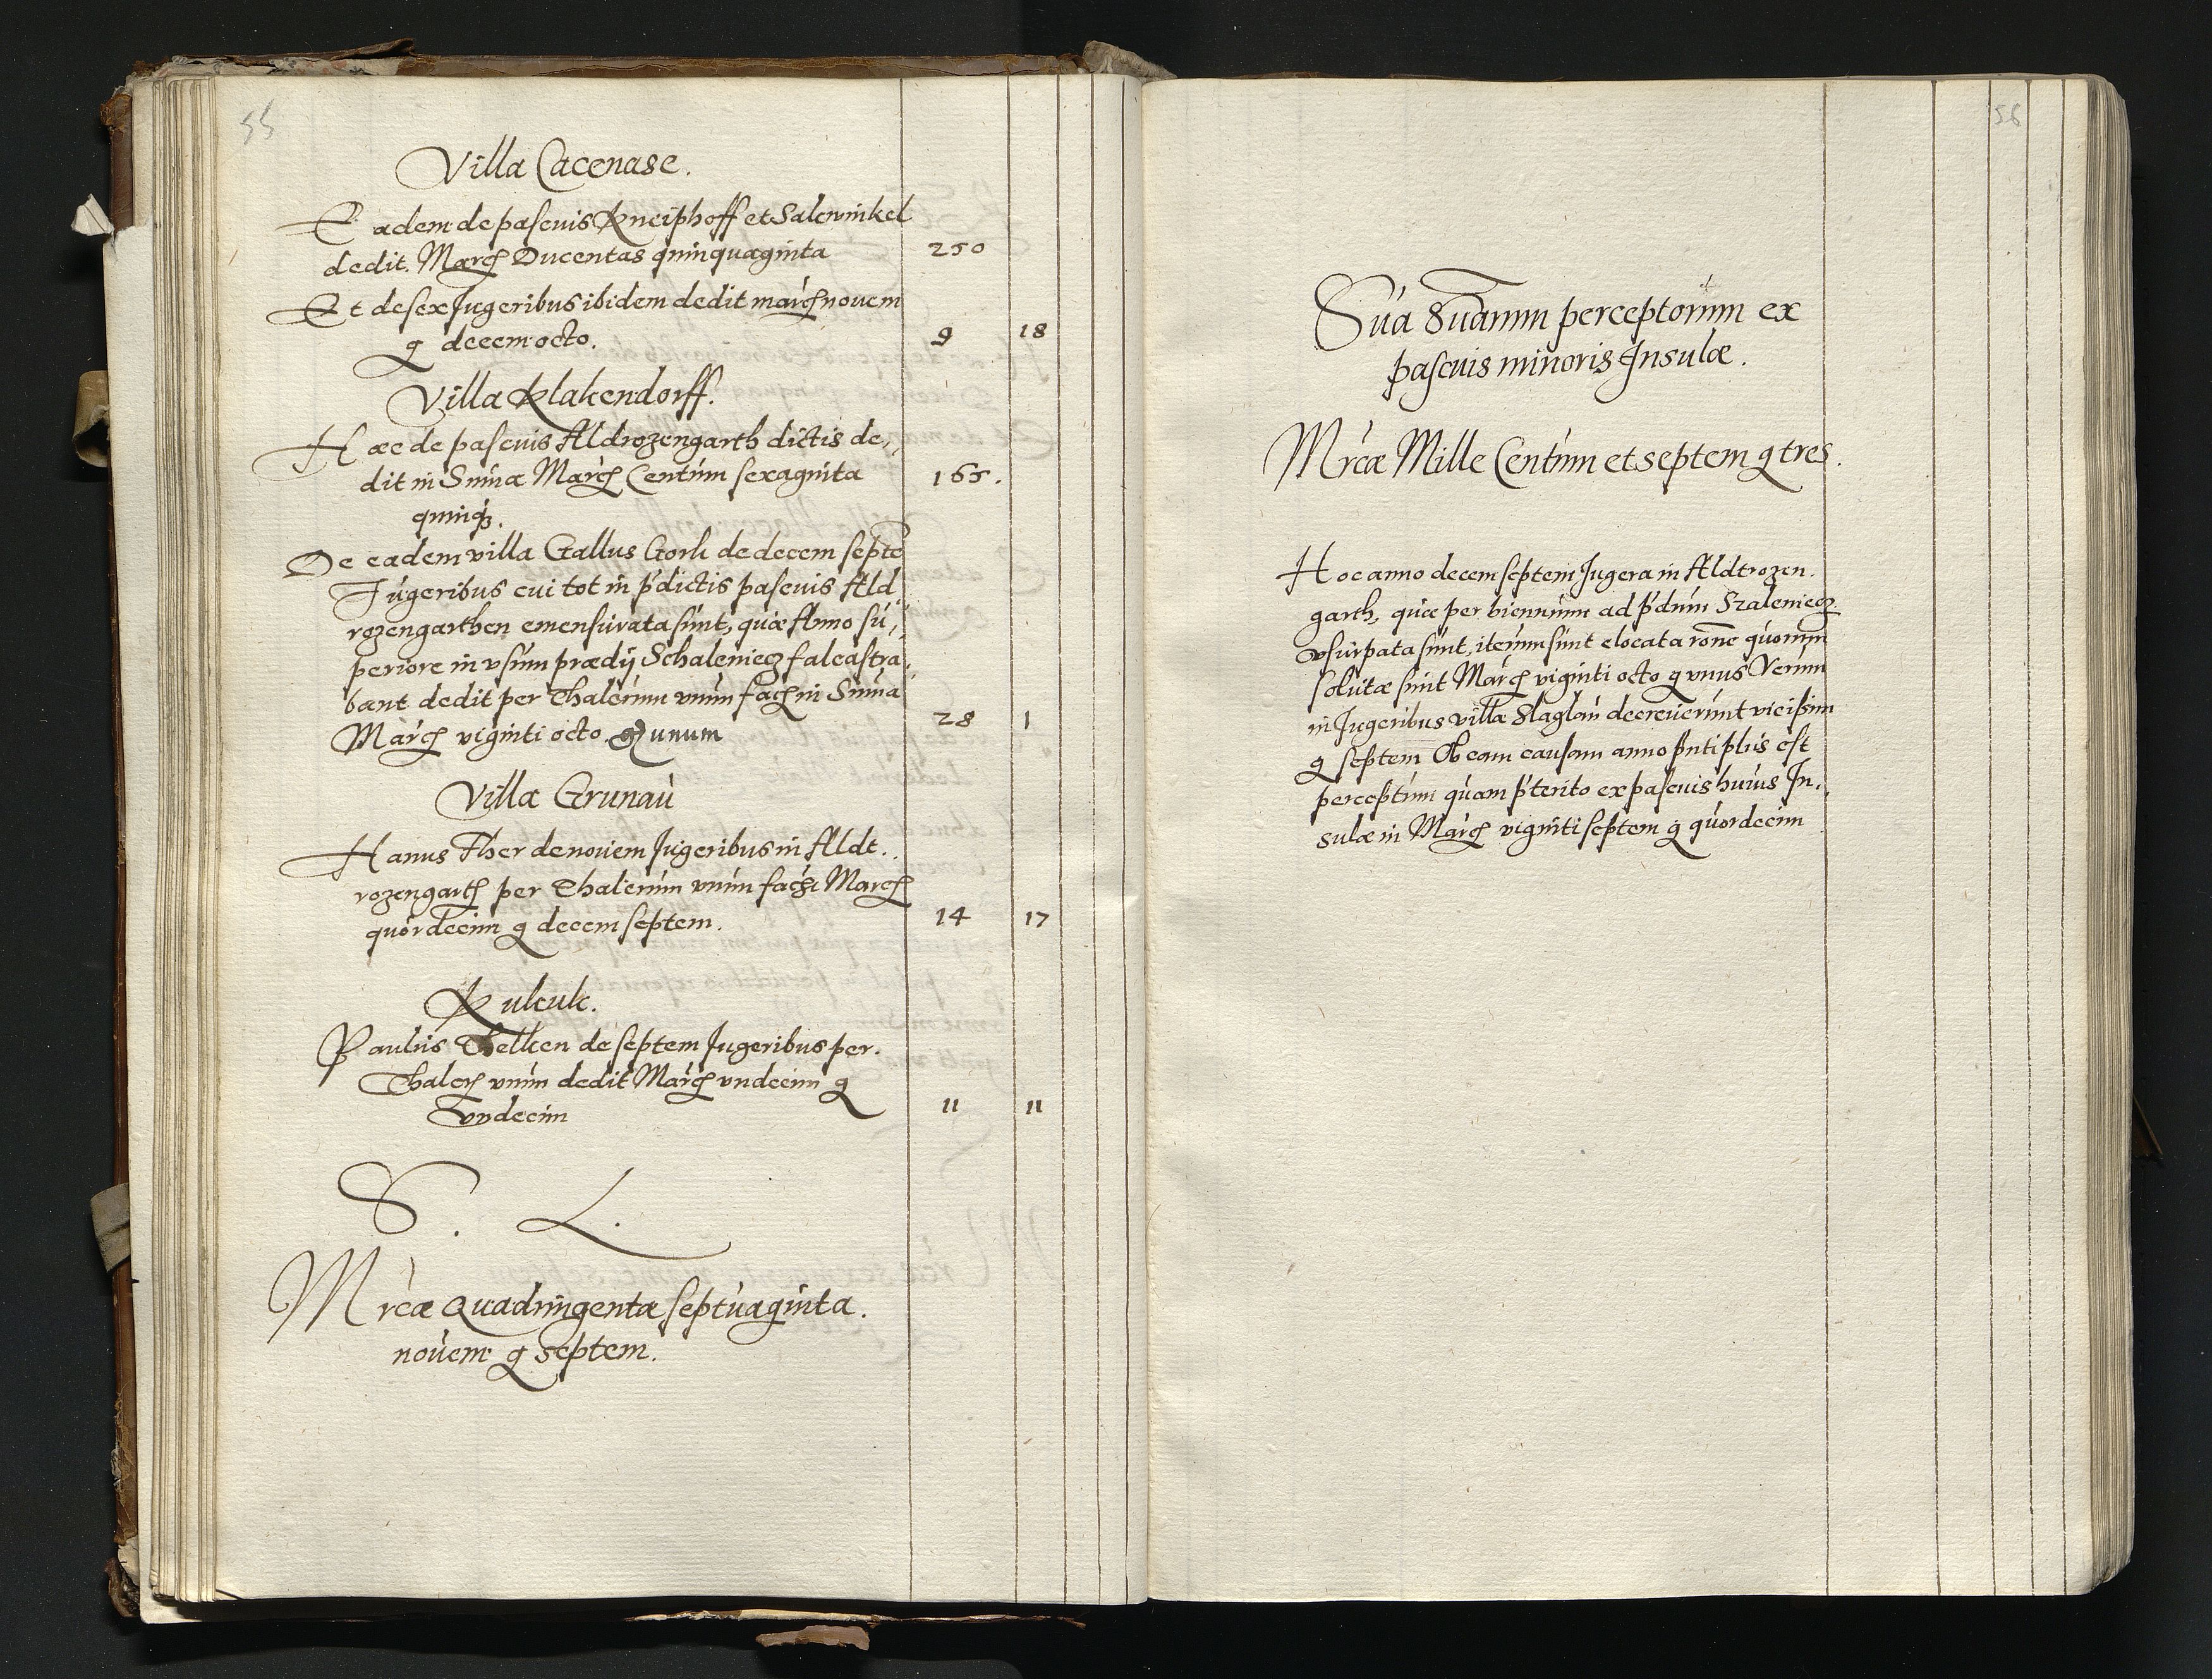 55
Villa Cacenase.
Eadem de pascuis Kneiphoff et Salcwinkel
dedit. March Ducentas quinquaginta 250
Et de sex Jugeribus ibidem dedit march novem
g decem octo. 9 18
Villa Klakendorff.
Haec de pascuis Aldrozengarth dictis de,,
dit in Suma March Centum sexaginta 165.
quinq3.
De eadem villa Gallus Gork de decem septe
Jugeribus cui tot in p'dictis pascuis Ald,,
rozengarthen emensurata sunt, quae Anno su,,
periore in usum praedij Schaleniecz falcastra,,
bant dedit per Thalerum unum fach in Suma
March viginti octo. g unum 28 1
Villa Grunau
Hanus Fher de novem Jugeribus in Aldt..
rozengarth per Thalerum unum faci March
quordecim g decem septem. 14 17
Kukuk.
Paulus Thelken de septem Jugeribus per.
Thaler unum dedit March undecim g
Undecim 11 11
S. L.
Mrcae Quadringentae septuaginta.
novem g septem.
56
Sua Suarum perceptorum ex
pascuis minoris Insulae.
Mrcae Mille Centum et septem g tres.
Hoc anno decem septem Jugera in Aldtrozen.
garth, quae per biennium ad p'dium Szaleniecz
usurpata sunt, iterum sunt elocata rone quorum
solutae sunt March viginti octo g unus Verum
in Jugeribus villae Slaglau decreverunt vicissim
g septem Ob eam causam anno pnti plus est
perceptum quam p'terito ex pascuis huius In,,
sulae in March viginti septem g quordecim